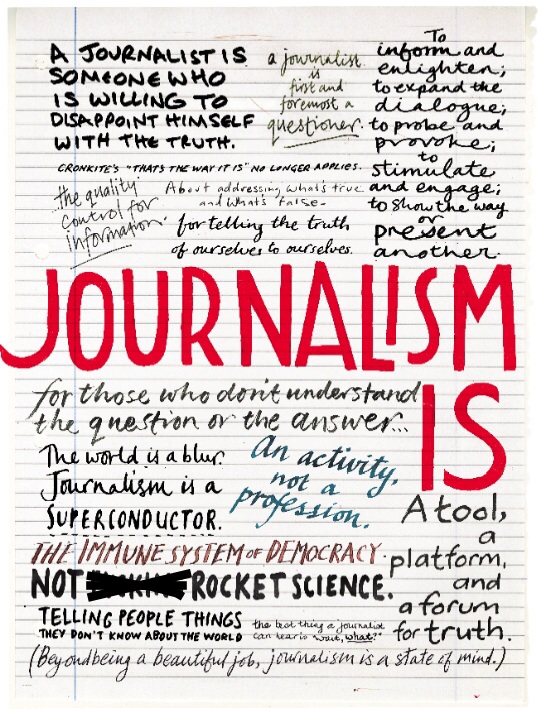 A JOURNALIST IS
SOMEONE WHO
IS WILLING TO
DISAPPOINT HIMSELF
WITH THE TRUTH.
a journalist
is
first and
foremost a
questioner.
To
inform and
enlighten;
to expand the
dialogue;
to probe and
provoke;
to
stimulate
and engage;
to show the way
or
present
another.
CRONKITE'S "THAT'S THE WAY IT IS" NO LONGER APPLIES.
the quality
control for
information.
About addressing what's true
and what's false.
for telling the truth
of ourselves to ourselves.
JOURNALISM
IS
for those who don't understand
the question or the answer...
The world is a blur.
Journalism is a
SUPERCONDUCTOR.
An activity,
not a
profession.
A tool,
a
platform,
and
a forum
for truth.
THE IMMUNE SYSTEM OF DEMOCRACY.
NOT ROCKET SCIENCE.
TELLING PEOPLE THINGS
THEY DON'T KNOW ABOUT THE WORLD
the best thing a journalist
can hear is "wait, what?"
(Beyond being a beautiful job, journalism is a state of mind.)